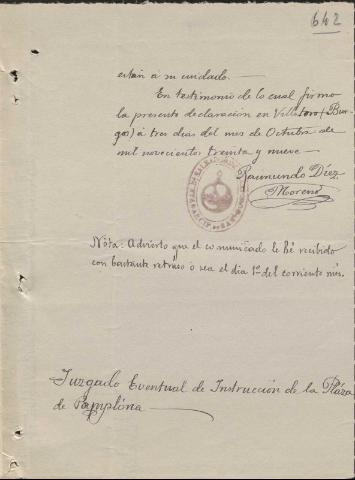 642
están a su cuidado.—
En testimonio de lo cual firmo
la presente declaración en Villatoro (Bur-
gos) á tres dias del mes de Octubre de
mil novecientos treinta y nueve —
Raimundo Díez
Moreno
Nota: Advierto que el comunicado le hé recibido
con bastante retraso ó sea el dia 1º del corriente mes.
Juzgado Eventual de Instrucción de la Plaza
de Pamplona —